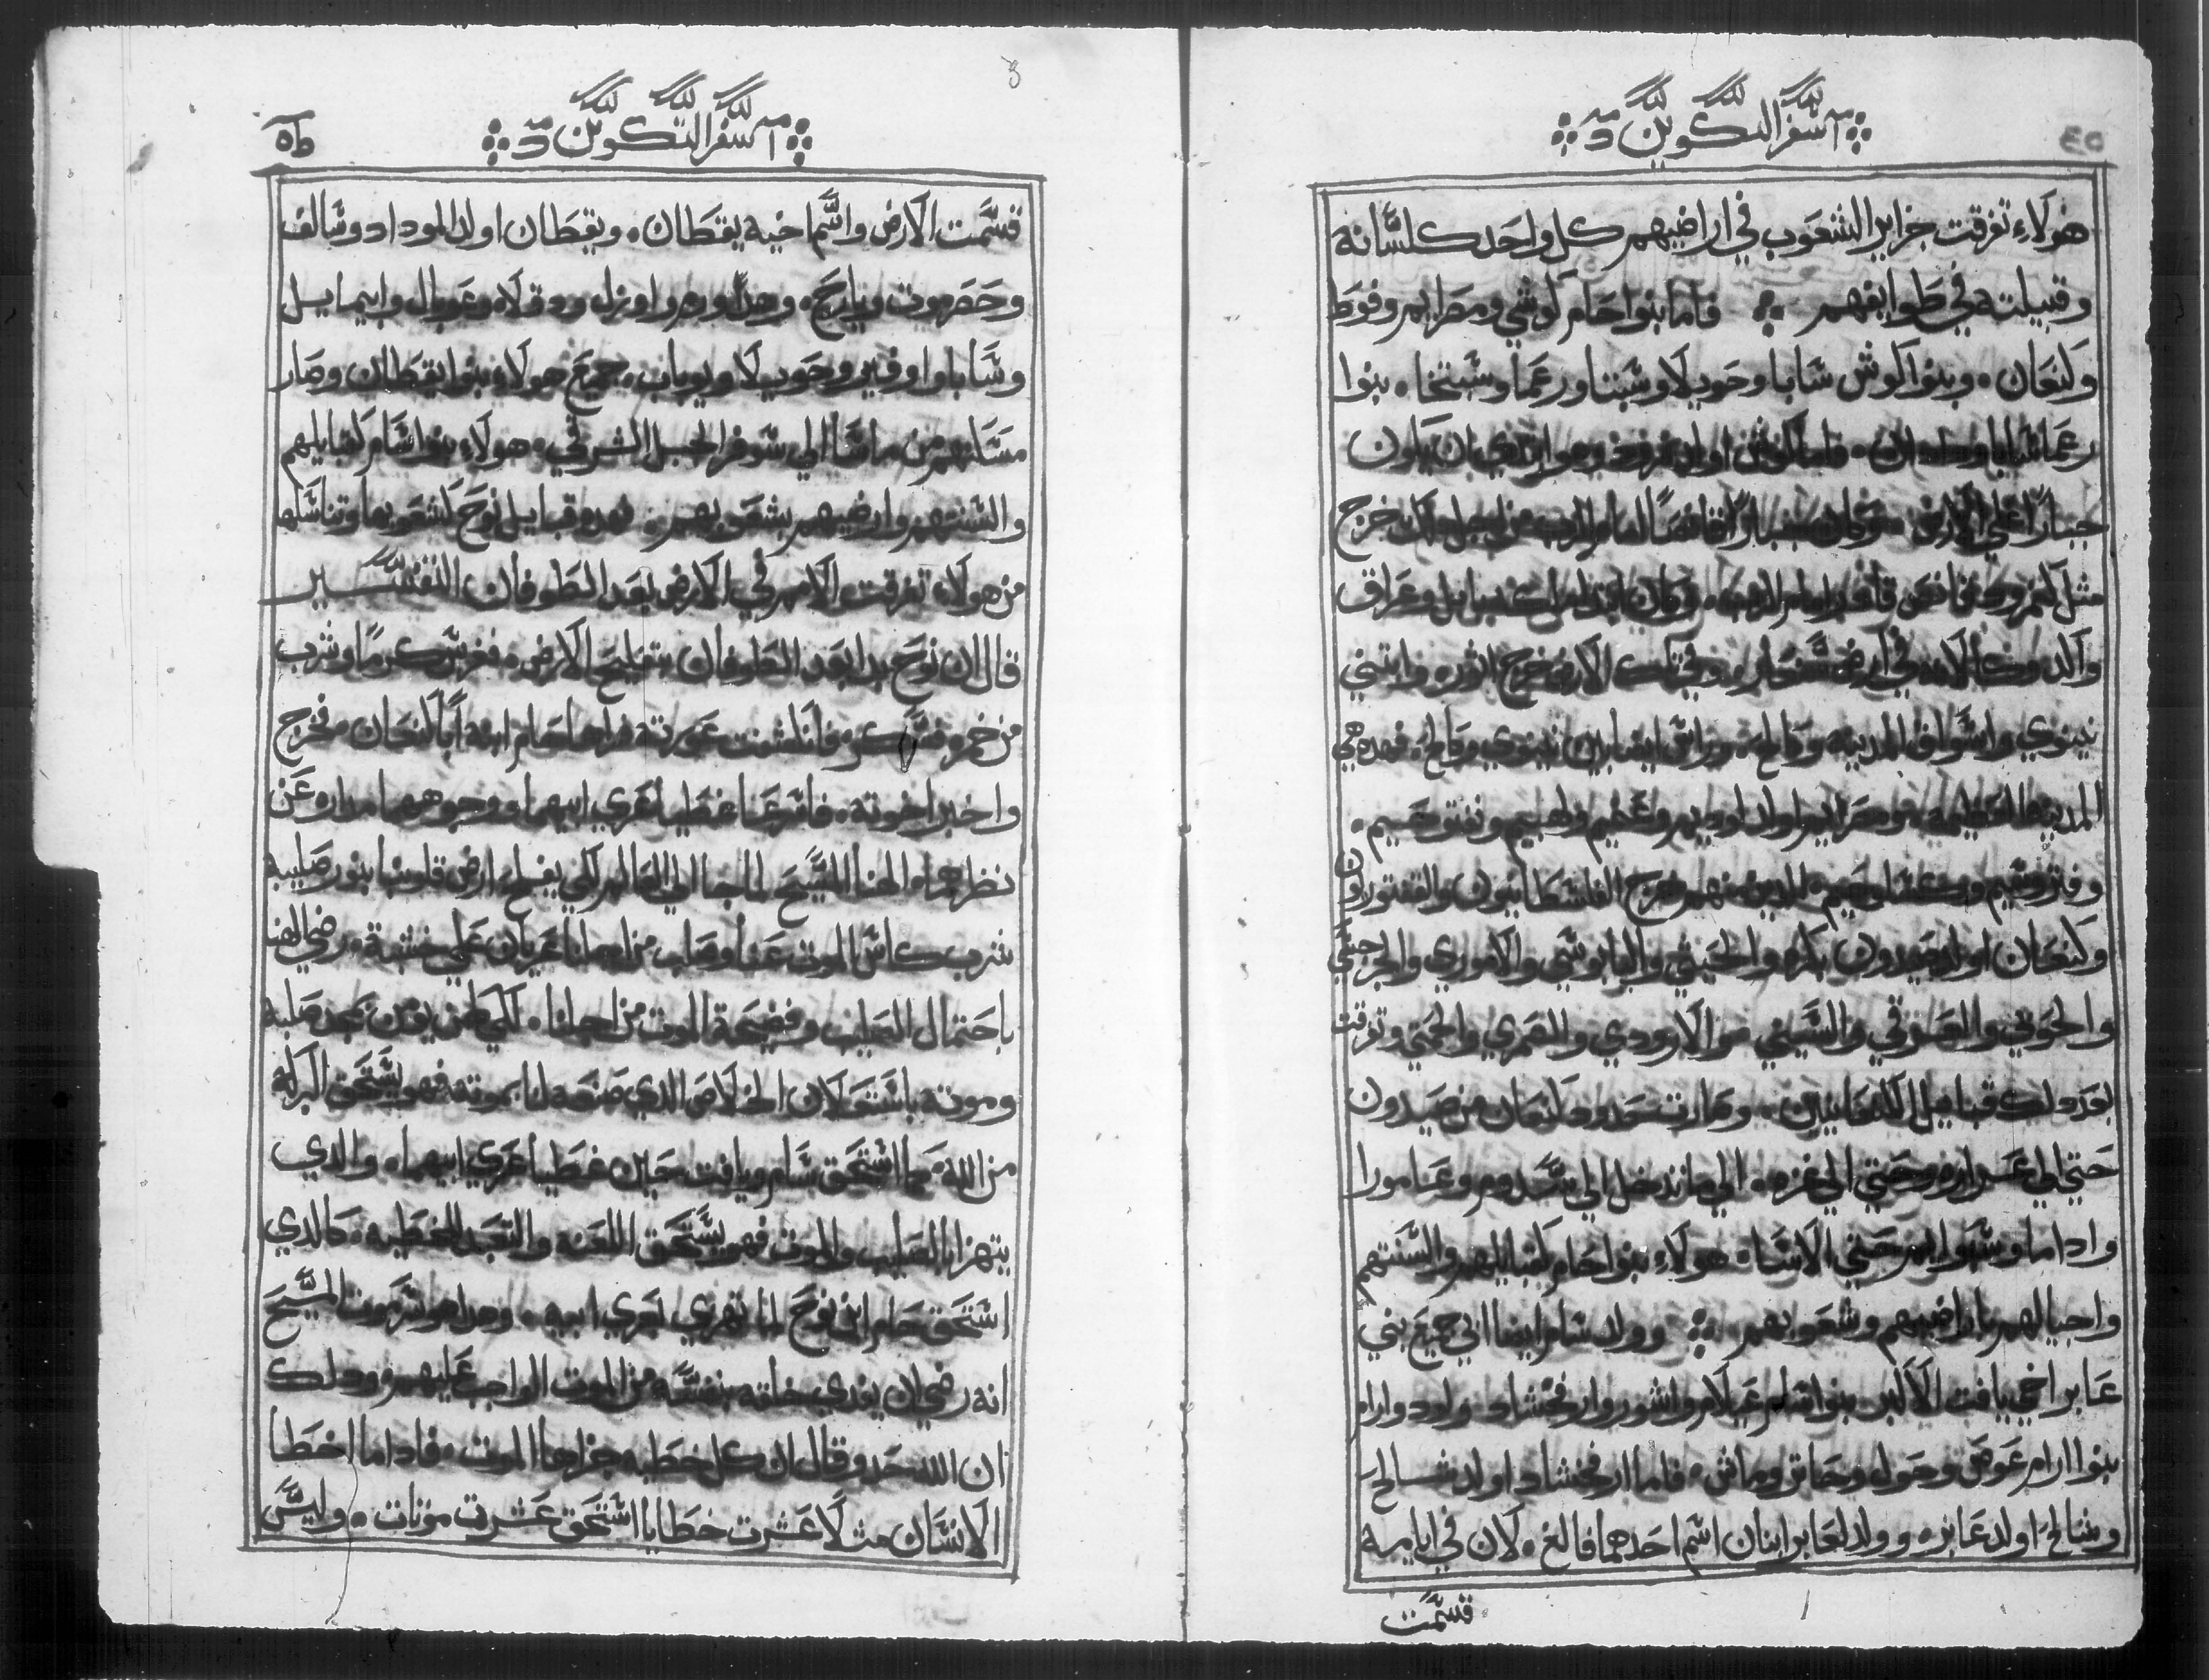 سفر التكوين
هولاء تفرقت جزاير الشعوب في اراضيهم كل واحد كلسانه
وقبيلته في طوايفهم فاما بنوا حام كوشي ومصرايم وفوط
وكنعان وبنوا كوش سابا وحويلا وسبتا ورعما وسبتخا بنوا
رعما شابا ودادان فاما كوش اولد نمرود وهو الذي بان يكون
جبارًا علي الارض وكان جبارًا قانصًا امام الرب من اجل ذلك خرج
مثل كنمرود قانص قدام الرب وكان ابتدا بابل وعراق
في ارض شنعار وفي تلك الارض خرج اثور وابتني
نينوي واسواق المدينه وكالح بين نينوي وكالح فهده هي
المدينه العظيمه ومصرايم اولد لوديم وعنميم ولهبيم ونفتوحيم
وفتروسيم وكسلوحيم الدين منهم خرج الفلسطانيون والقفتوريون
وكنعان اولد صيدون بكره والحيثي واليابوسي والاموري والجرجسي
والحوي والعرقي والسيني والارودي والصمري والحمتي وتفرقت
بعد دلك قبايل الكنعانيين وصارت حدود كنعان من صيدون
حتي الي غزه الي ما تدخل الي سدوم وعامورا
واداما وسبوايم حتي الاشا هولاء بنوا حام لقبايلهم والسنتهم
واجيالهم باراضيهم وشعوبهم وولد سام ايضا ابي جميع بني
عابر اخي يافت الاكبر بنوا سام عيلام واشور وارفخشاد ولود وارام
بنوا ارام عوص وحول وجاتر وماش فاما ارفخشاد اولد شالح
وشالح اولد عابر وولد لعابر ابنان اسم احدهما فالغ لان في ايامه
قسمت
سفر التكوين
قسمت الارض واسم اخيه يقطان ويقطان اولد المودود وسالف
وحصرموت ويارح وهدورم واوزل ودقلاه وعوبال وابيمايل
وشابا واوفير وحويلا ويوباب جميع هولاء بنوا يقطان وصار
مسكنهم من ماشا الي سوفر الجبل الشرقي هولاء بنوا سام لقبايلهم
والسنتهم وارضيهم بشعوبهم فهده قبايل نوح لشعوبها وتناسلها
من هولاء تفرقت الامم في الارض بعد الطوفان التفسير
قال ان نوح بدا بعد الطوفان بتفليح الارض فغرس كرمًا وشرب
من خمره فسكر فانكشفت عورته فراها حام ابنه ابا كنعان فخرج
واخبر اخوته فاسرعا غطيا عري ابيهما ووجوههما مداره عن
نظرهما الهنا المسيح لما جا الي العالم لكي يفلح ارض قلوبنا بنور صليبه
شرب كاس الموت عنا وصلب من اجلنا عريان علي خشبة رضي الهنا
باحتمال الصليب وفضيحة الموت من اجلنا لكي كلمن يومن بمجد صلبه
وموته باستعلان الخلاص الدي صنعه لنا بموته فهو يستحق البركه
من الله كما استحق سام ويافت حين غطيا عري ابيهما والدي
يتهزا بالصليب والموت فهو يستحق اللعنه والتعبد للخطيه كالدي
استحق حام ابن نوح لما تهزي بعري ابيه وهدا هو سر موت المسيح
انه رضي لان يفدي خلقه بنفسه من الموت الواجب عليهم ودلك
ان الله حد وقال ان كل خطيه جزاها الموت فاداما اخطا
الانسان مثلًا عشرت خطايا استحق عشرت موتات وليس